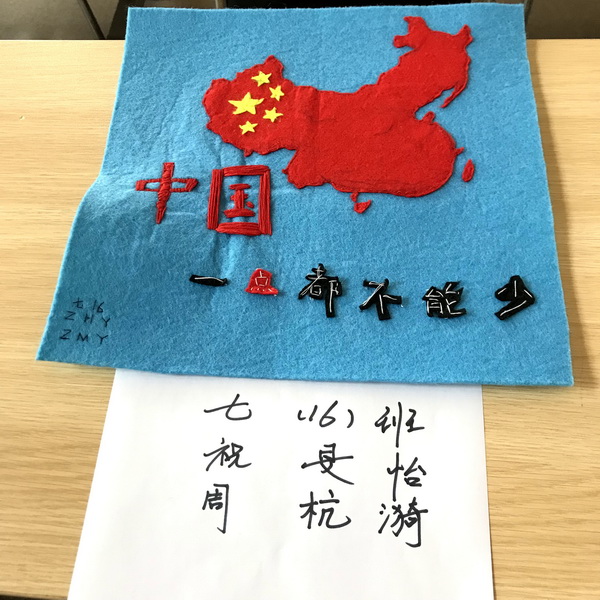 中国
一点都不能少
七16
ZHY
ZMY
七(16)班
祝旻怡
周杭漪